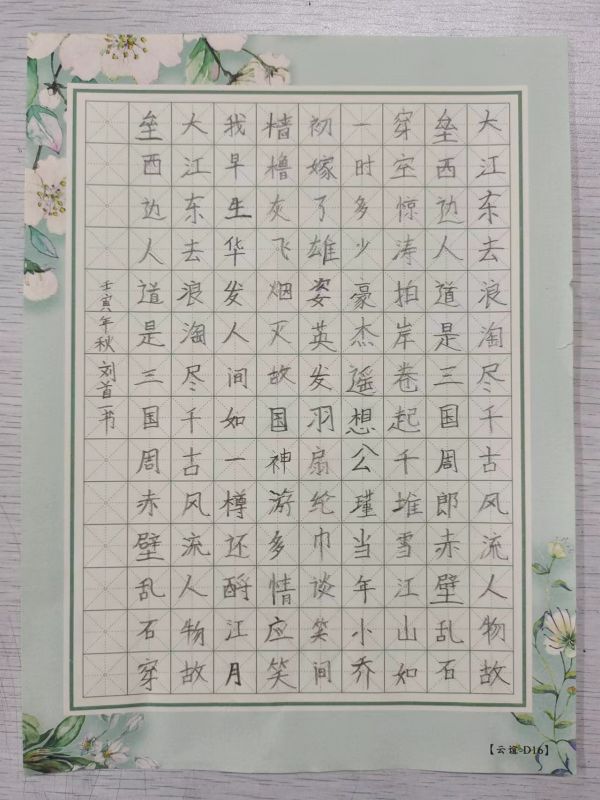 大江东去浪淘尽千古风流人物故
垒西边人道是三国周郎赤壁乱石
穿空惊涛拍岸卷起千堆雪江山如
一时多少豪杰遥想公瑾当年小乔
初嫁了雄姿英发羽扇纶巾谈笑间
樯橹灰飞烟灭故国神游多情应笑
我早生华发人间如一樽还酹江月
大江东去浪淘尽千古风流人物故
垒西边人道是三国周赤壁乱石穿
壬寅年秋刘首一书
【云谊-D16】